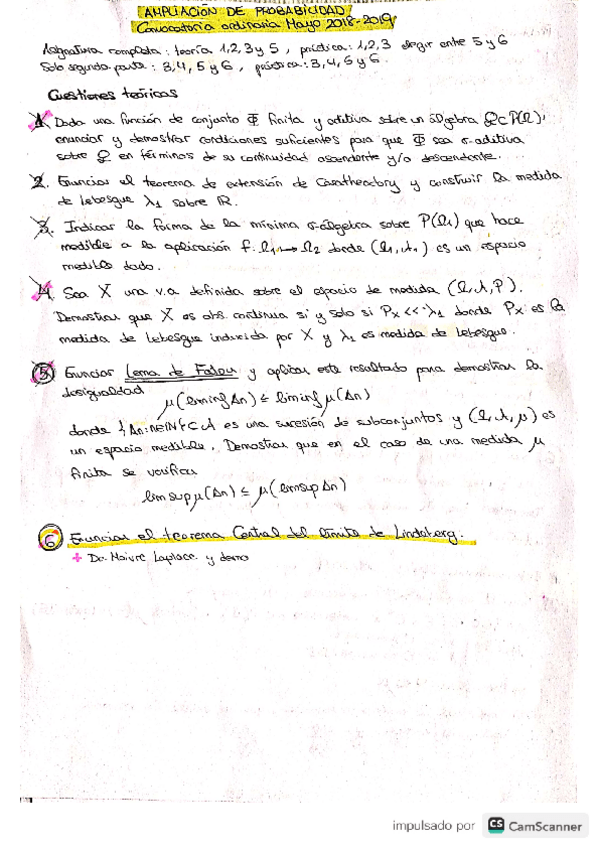 AMPLIACIÓN DE PROBABILIDAD
Convocatoria ordinaria Mayo 2018-2019
Asignatura completa: teoría 1,2,3 y 5, práctica: 1,2,3 elegir entre 5 y 6
Solo segunda parte: 3,4,5 y 6, práctica: 3,4,5 y 6.
Cuestiones teóricas
1. Dada una función de conjunto Φ finita y aditiva sobre un álgebra Q⊂P(Ω),
enunciar y demostrar condiciones suficientes para que Φ sea σ-aditiva
sobre Q en términos de su continuidad ascendente y/o descendente.
2. Enunciar el teorema de extensión de Caratheodory y construir la medida
de Lebesgue λ₁ sobre ℝ.
3. Indicar la forma de la mínima σ-álgebra sobre P(Ω₁) que hace
medible a la aplicación f: Ω₁→Ω₂ donde (Ω₁,A₁) es un espacio
medible dado.
4. Sea X una v.a definida sobre el espacio de medida (Ω,A,P).
Demostrar que X es abs. continua si y solo si Px << λ₁ donde Px es la
medida de Lebesgue inducida por X y λ₁ es medida de Lebesgue.
5 Enunciar Lema de Fatou y aplicar este resultado para demostrar la
desigualdad
μ(liminf An) ≤ liminf μ(An)
donde {An: n∈ℕ}⊂A es una sucesión de subconjuntos y (Ω,A,μ) es
un espacio medible. Demostrar que en el caso de una medida μ
finita se verifica
limsup μ(An) ≤ μ(limsup An)
6 Enunciar el teorema Central del límite de Lindeberg.
+ De Moivre Laplace y demo
impulsado por CS CamScanner